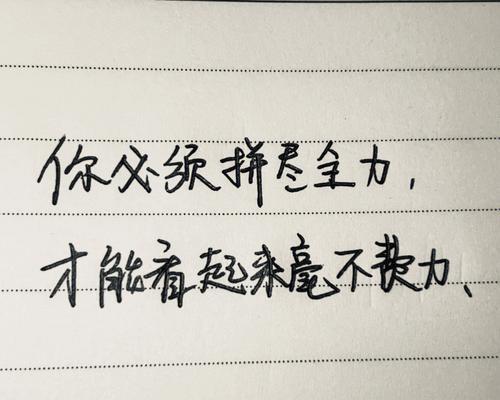 你必须拼尽全力，
才能看起来毫不费力、